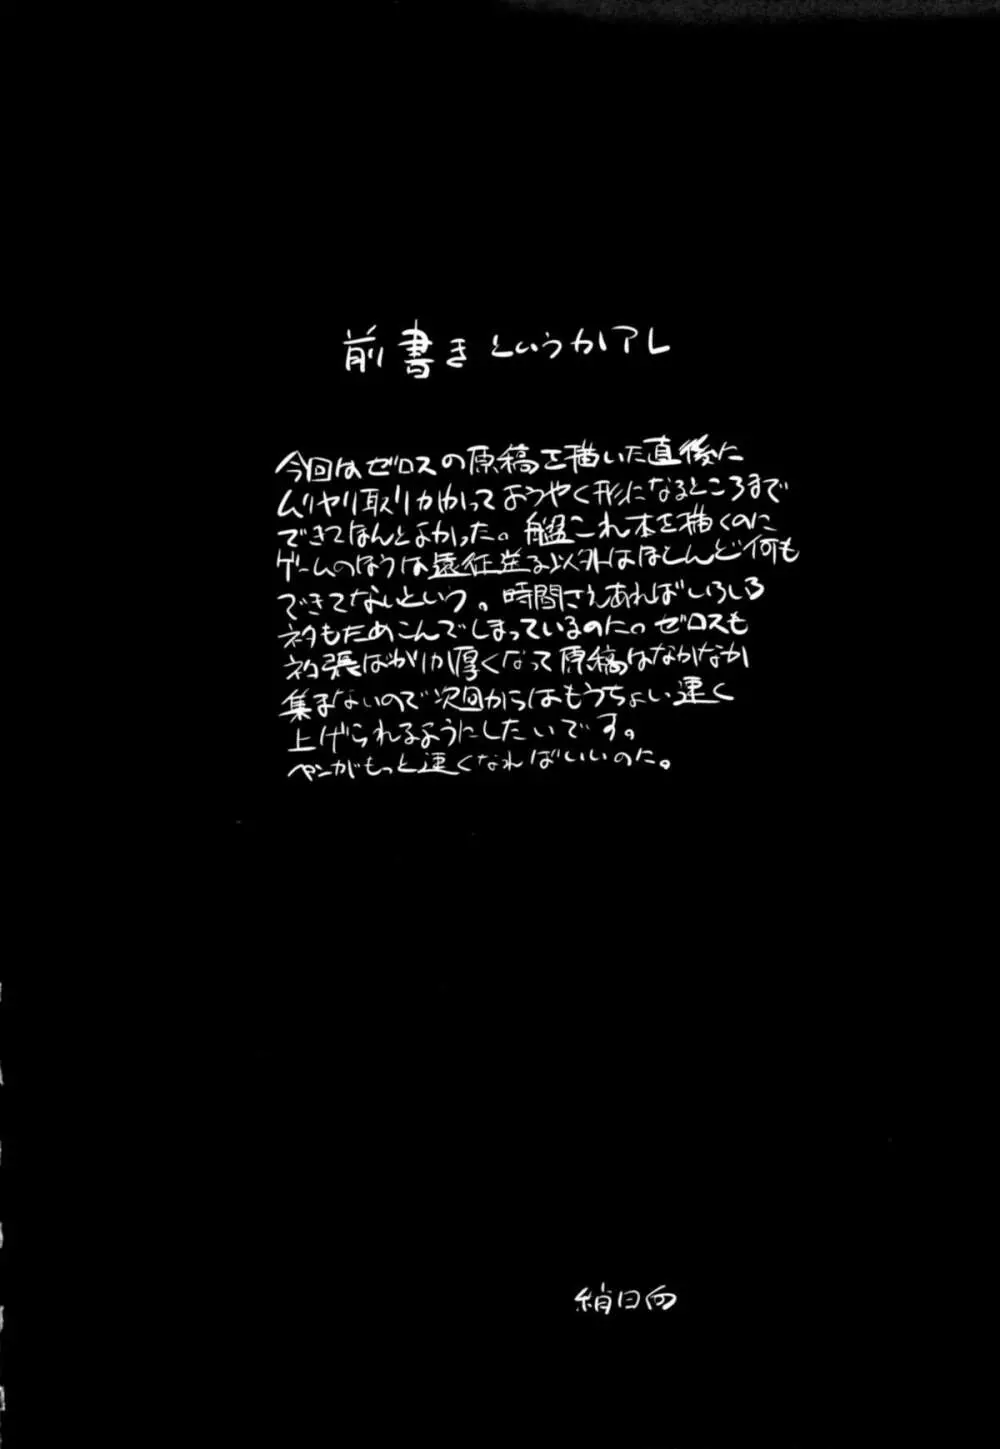 前書きというかアレ
今回はゼロスの原稿を描いた直後に
ムリヤリ取りかかってようやく形になるところまで
できてなんとかよかった。艦これ本を描くのに
ゲームのほうは遠征送る以外はほとんど何も
できてないという。時間さえあればいろいろ
ネタもためこんでしまっているのに。ゼロスも
ネタ帳ばかり厚くなって原稿はなかなか
集まないので次回からはもうちょい速く
上げられるようにしたいです。
ペンがもっと速くなればいいのに。
絹日向